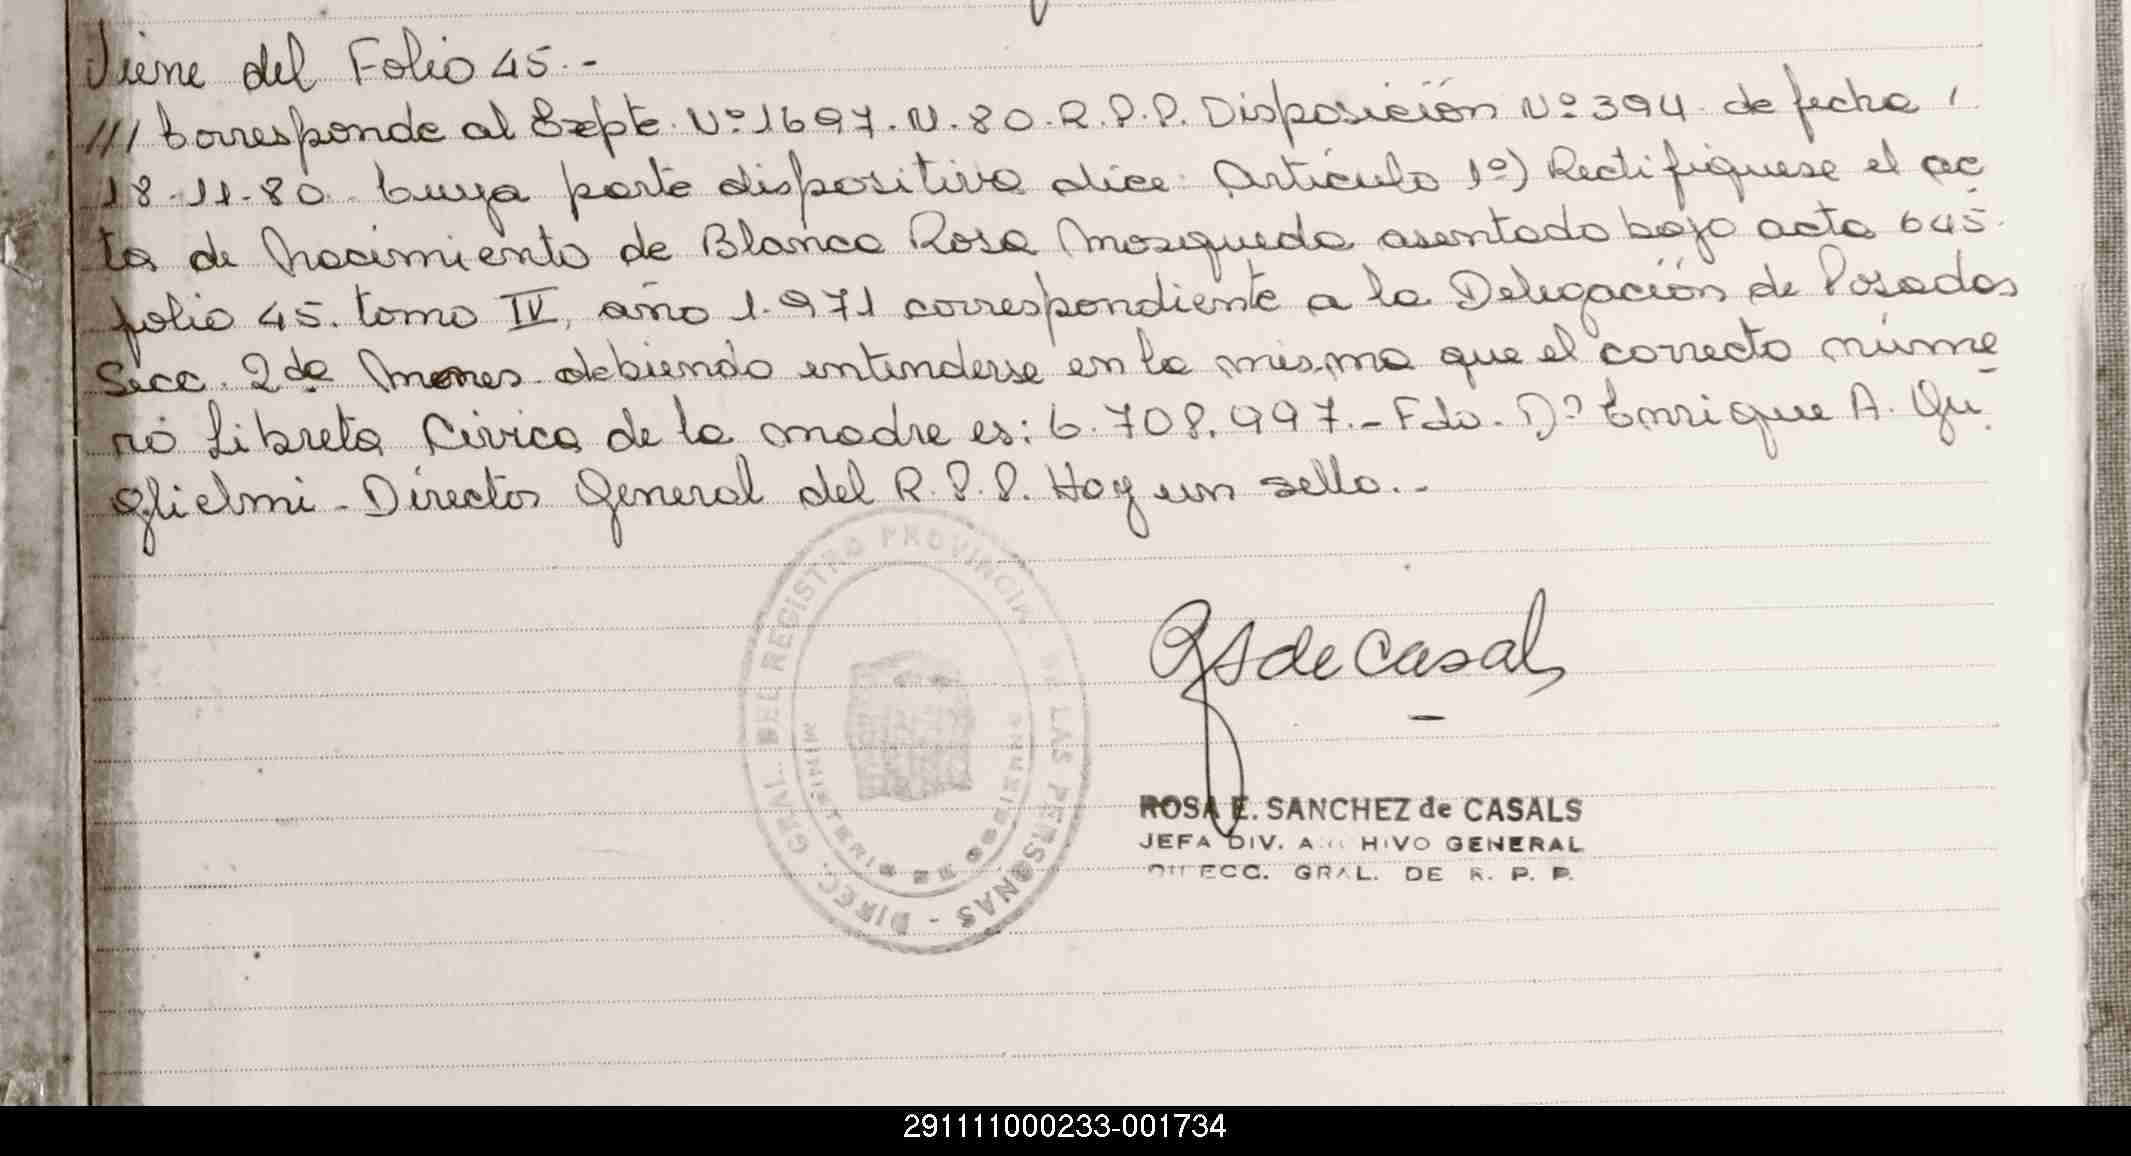 Viene del Folio 45.-
/// Corresponde al Expte. Nº 1697.N.80.R.P.P. Disposición Nº 394 de fecha /
18.11.80. Cuya parte dispositiva dice: Artículo 1º) Rectifíquese el ac
ta de Nacimiento de Blanca Rosa Mosqueda asentado bajo acta 645.
folio 45. tomo IV, año 1.971 correspondiente a la Delegación de Posadas
Secc. 2da Mnes debiendo entenderse en la misma que el correcto núme
ro Libreta Cívica de la madre es: 6.708.997.- Fdo. Dº Enrique A. Gu
glielmi - Director General del R.P.P. Hay un sello.-
DIREC. GRAL. DEL REGISTRO PROVINCIAL DE LAS PERSONAS -
MINISTERIO DE GOBIERNO
RS de Casals
ROSA E. SANCHEZ de CASALS
JEFA DIV. ARCHIVO GENERAL
DIRECC. GRAL. DE R. P. P.
291111000233-001734